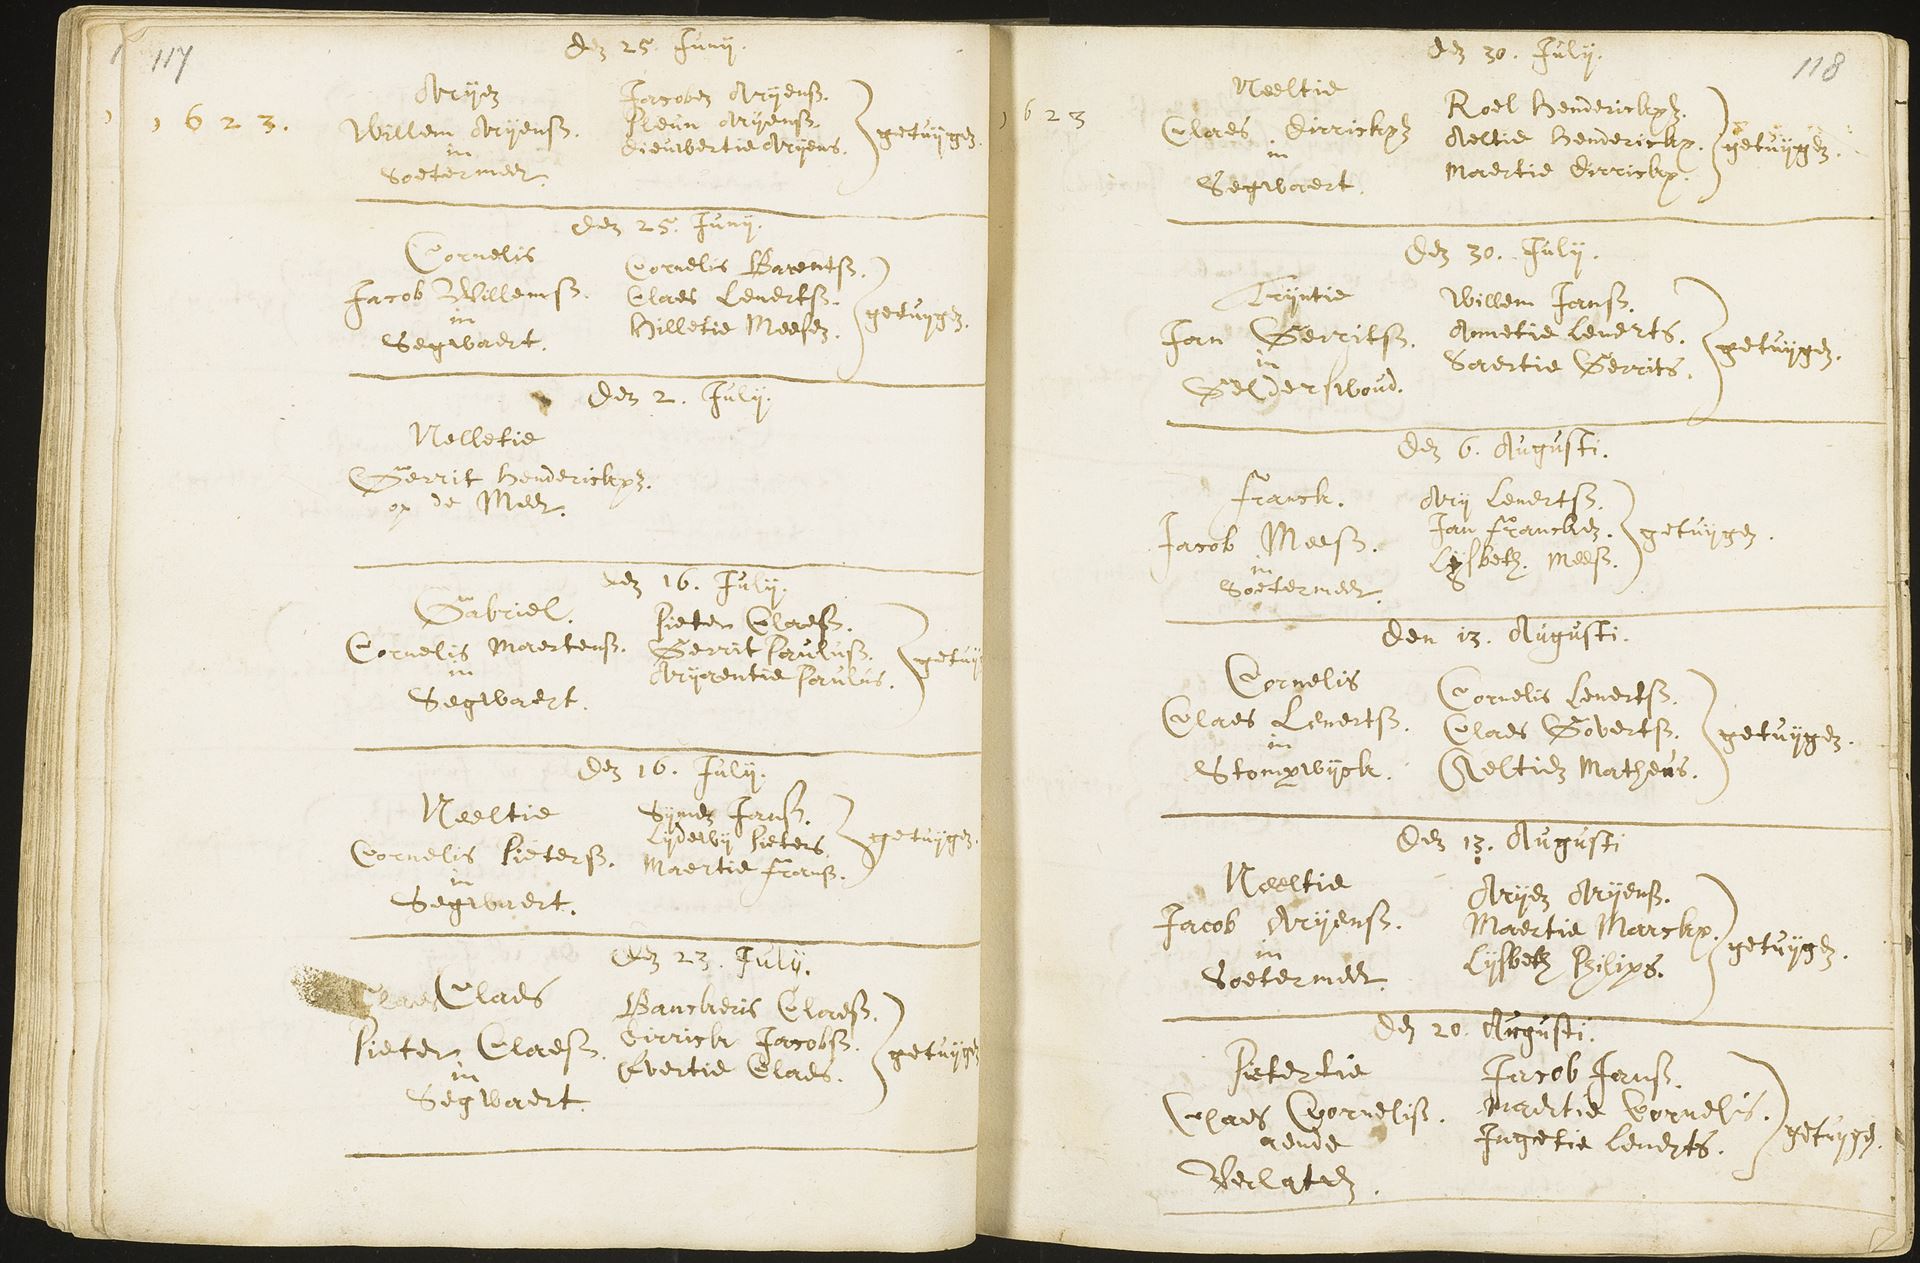 117
1623.
den 25. Junij.
Arijen
Willem Arijensz.
in
Soetermeer.
Jacobez Arijensz.
Pleun Arijensz
Dieuwertie Arijens.
getuijgen.
den 25. Junij.
Cornelis
Jacob Willemsz.
in
Segwaert.
Cornelis Barentsz.
Claes Leuertsz.
Hilletie Meesez.
getuijgen.
Den 2. Julij.
Nelletie
Gerrit Henderickxz.
op de Meer.
den 16. Julij.
Gabriel.
Cornelis Maertensz.
in
Segwaert.
Pieter Claesz.
Gerrit Paulusz.
Arijaentie Paulus.
getuij
Den 16. Julij.
Neeltie
Cornelis Pietersz.
in
Segwaert.
Symez Jansz.
Lijdewij Pieters.
Maertie Fransz.
getuijgen.
Den 23. Julij.
Claes
Pieter Claesz.
in
Segwaert.
Banckeris Claesz.
Dirrick Jacobsz.
Evertie Claes.
getuijgen
118
1623
den 30. Julij.
Neeltie
Claes Dirrickxz
in
Segwaert.
Roel Henderickxz.
Aeltie Henderickx.
Maertie Dirrickx.
getuijgen.
Den 30. Julij.
Trijntie
Jan Gerritsz.
in
Gelderswoud.
Willem Jansz.
Annetie Leuerts.
Saertie Gerrits.
getuijgen.
Den 6. Augusti.
Franck.
Jacob Meesz.
in
Soetermeer.
Arij Leuertsz.
Jan Franckez.
Lijsbeth. Meesz.
getuijgen.
Den 13. Augusti.
Cornelis
Claes Leuertsz.
in
Stompwijck.
Cornelis Leuertsz.
Claes Govertsz.
Aeltiez Matheus.
getuijgen.
Den 13. Augusti
Neeltie
Jacob Arijensz.
in
Soetermeer.
Arijez Arijensz.
Maertie Marckx.
Lijsbeth Philips.
getuijgen.
Den 20. Augusti.
Pietertie
Claes Cornelisz.
aende
Verlaten.
Jacob Jansz.
Maertie Cornelis.
Ingetie Leuerts.
getuijgen.